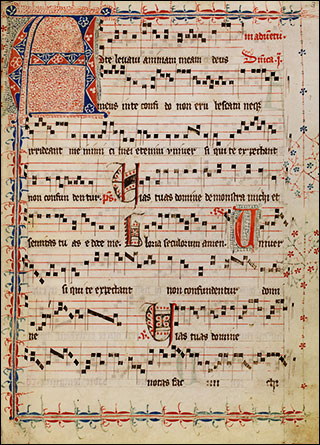 in adventu
Ad te levavi animam meam deus Dñica .I.
meus inte confi do non eru besceam neqꝫ
irrideant me inimi ci mei etenim univer si qui te expectant
non confun dentur. ps. Vias tuas domine demonstra michi et
semitas tu as e doce me. Gloria seculorum amen. Univer
si qui te expectant non confundentur domi
ne Vias tuas domine
notas fac